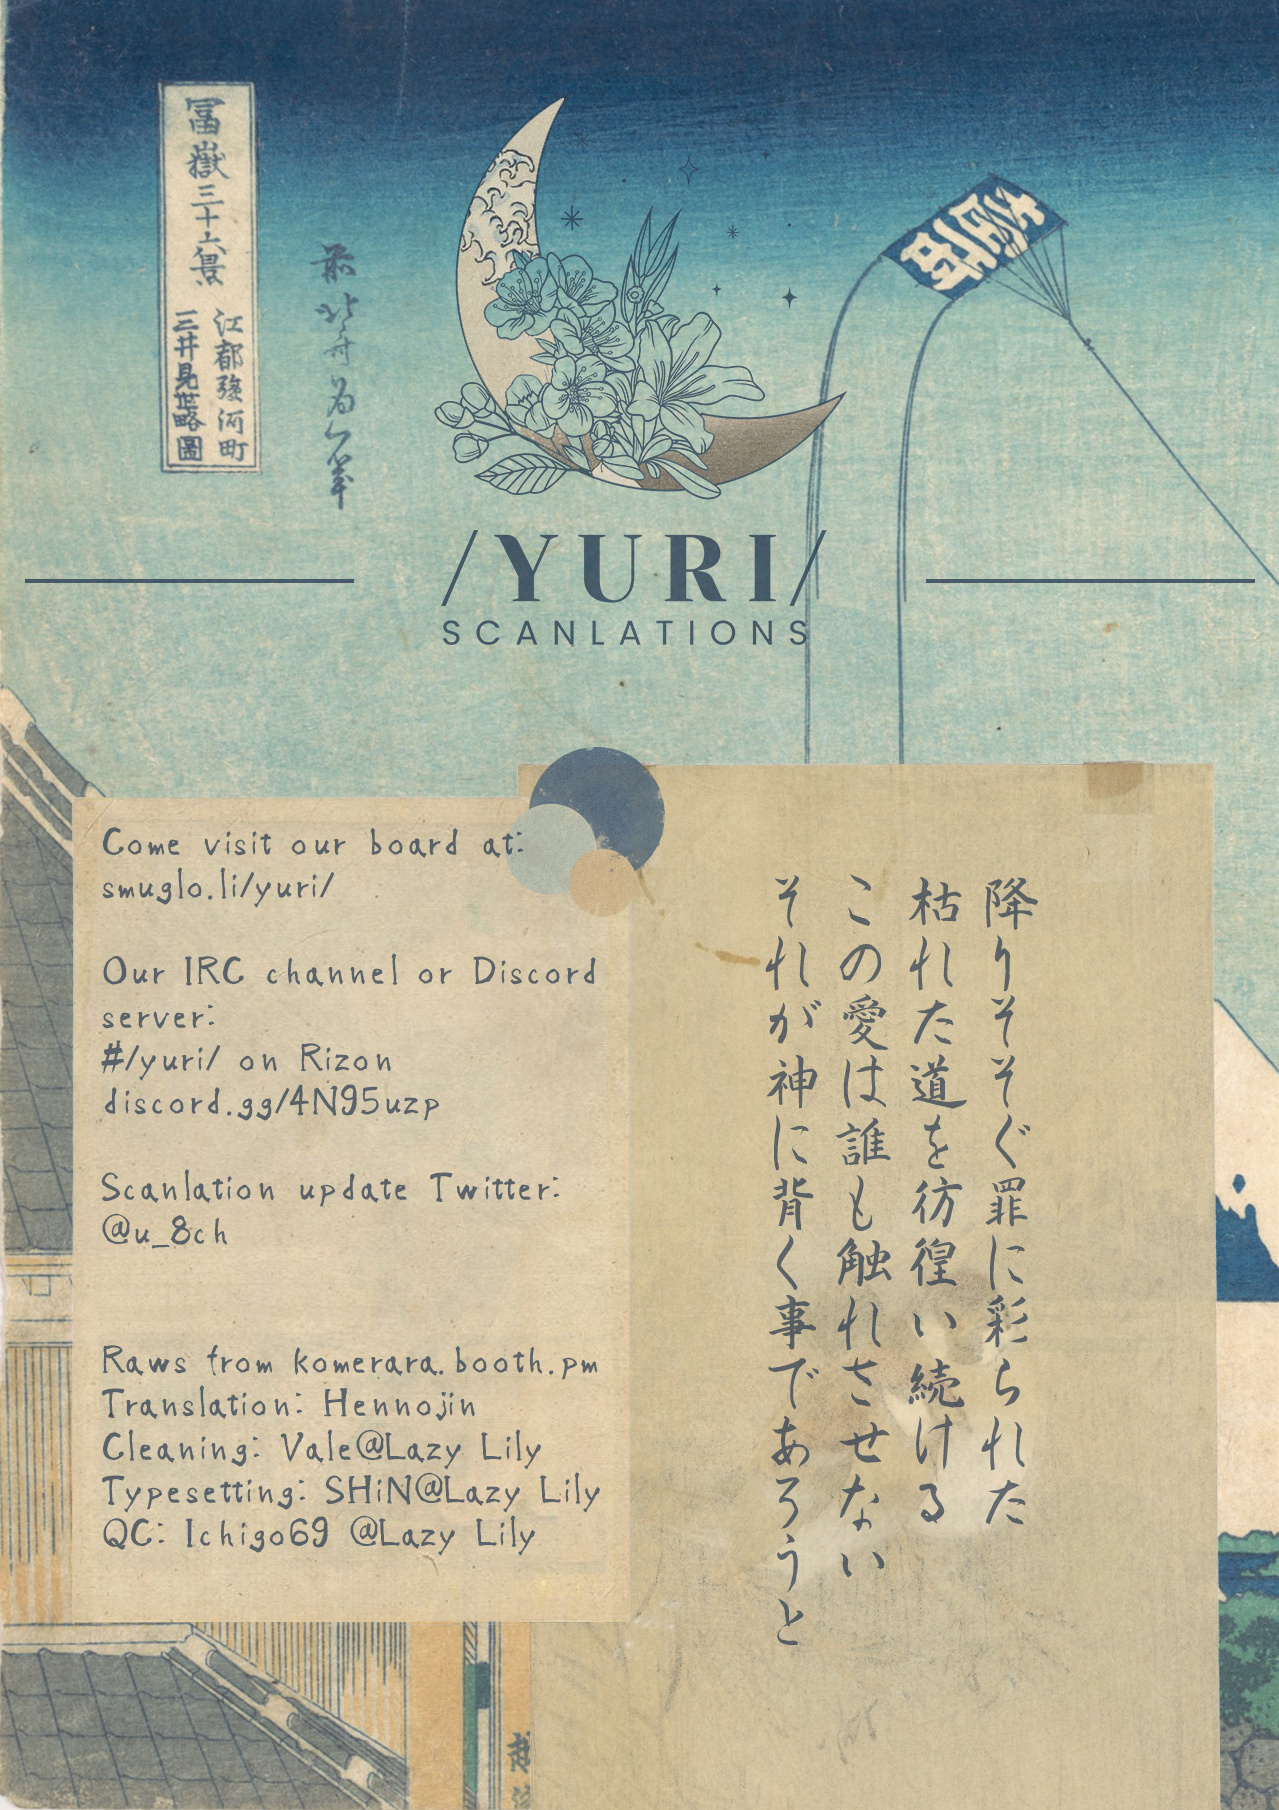 冨嶽三十六景
江都駿河町
三井見世略圖
前北斎為一筆
/YURI/
SCANLATIONS
Come visit our board at:
smuglo.li/yuri/
Our IRC channel or Discord
server:
#/yuri/ on Rizon
discord.gg/4N95uzp
Scanlation update Twitter:
@u_8ch
Raws from komerara.booth.pm
Translation: Hennojin
Cleaning: Vale@Lazy Lily
Typesetting: SHiN@Lazy Lily
QC: Ichigo69 @Lazy Lily
降りそそぐ罪に彩られた
枯れた道を彷徨い続ける
この愛は誰も触れさせない
それが神に背く事であろうと